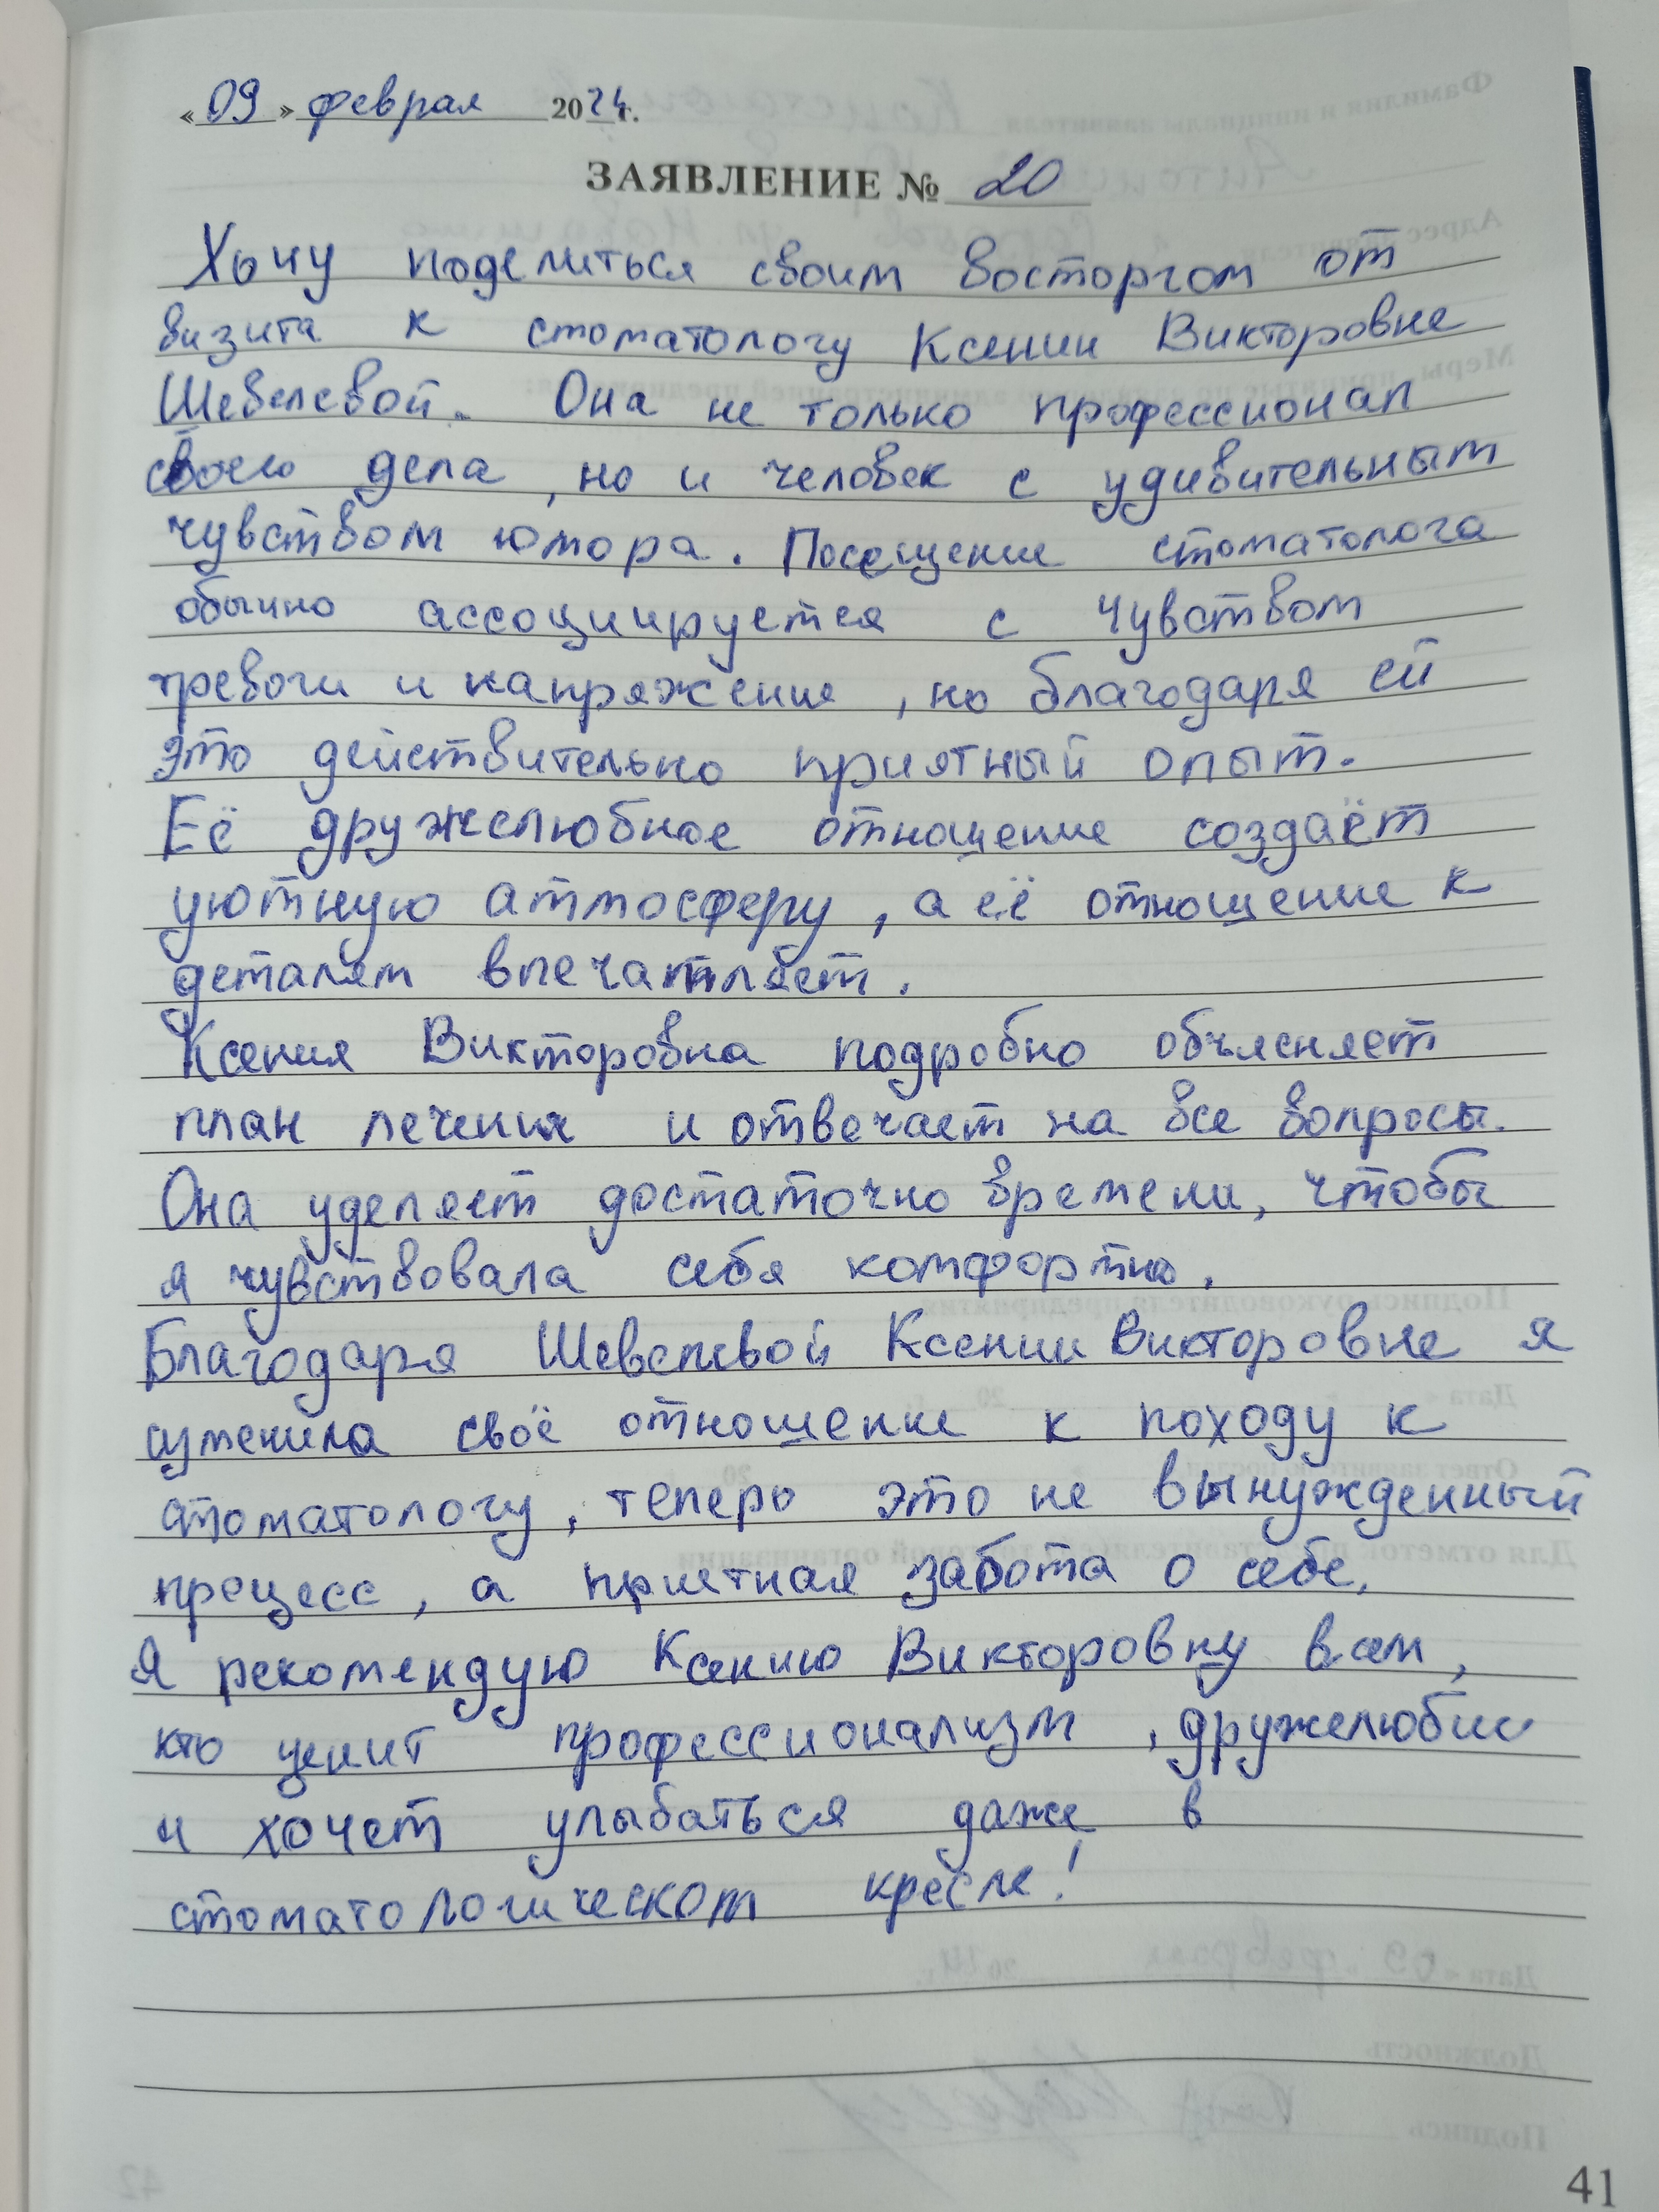 «09» февраля 2024г.
ЗАЯВЛЕНИЕ № 20
Хочу поделиться своим восторгом от
визита к стоматологу Ксении Викторовне
Шевелевой. Она не только профессионал
своего дела, но и человек с удивительным
чувством юмора. Посещение стоматолога
обычно ассоциируется с чувством
тревоги и напряжение, но благодаря ей
это действительно приятный опыт.
Её дружелюбное отношение создаёт
уютную атмосферу, а её отношение к
деталям впечатляет.
Ксения Викторовна подробно объясняет
план лечения и отвечает на все вопросы.
Она уделяет достаточно времени, чтобы
я чувствовала себя комфортно.
Благодаря Шевелевой Ксении Викторовне я
изменила своё отношение к походу к
стоматологу, теперь это не вынужденный
процесс, а приятная забота о себе.
Я рекомендую Ксению Викторовну всем,
кто ценит профессионализм, дружелюбие
и хочет улыбаться даже в
стоматологическом кресле!
41